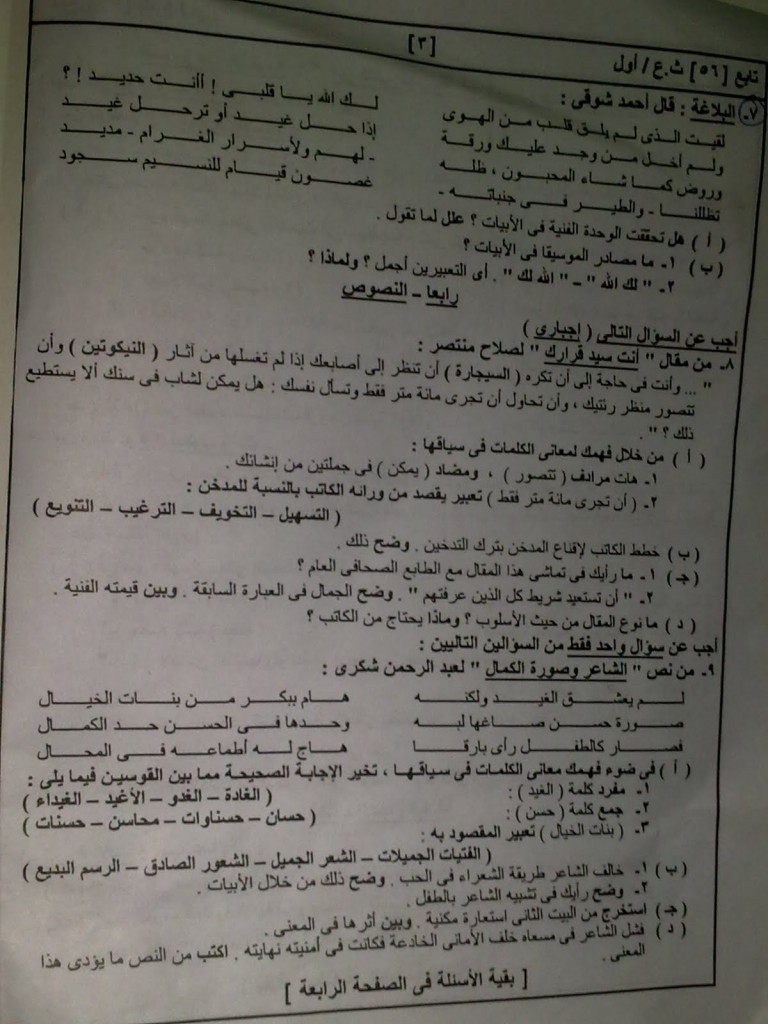 تابع [٥٦] ث.ع / أول
[٣]
٧- البلاغة : قال أحمد شوقى :
لقيت الذى لم يلق قلب من الهوى لك الله يا قلبى ! أأنت حديد ! ؟
ولم أخل من وجد عليك ورقة إذا حل غيد أو ترحل غيد
وروض كما شاء المحبون ، ظله - لهم ولأسرار الغرام - مديد
تظللنا - والطير فى جنباته - غصون قيام للنسيم سجود
( أ ) هل تحققت الوحدة الفنية فى الأبيات ؟ علل لما تقول .
( ب ) ١- ما مصادر الموسيقا فى الأبيات ؟
٢- " لك الله " – " الله لك " . أى التعبيرين أجمل ؟ ولماذا ؟
رابعا – النصوص
أجب عن السؤال التالى ( إجبارى )
٨- من مقال " أنت سيد قرارك " لصلاح منتصر :
" ... وأنت فى حاجة إلى أن تكره ( السيجارة ) أن تنظر إلى أصابعك إذا لم تغسلها من آثار ( النيكوتين ) وأن
تتصور منظر رئتيك ، وأن تحاول أن تجرى مائة متر فقط وتسأل نفسك : هل يمكن لشاب فى سنك ألا يستطيع
ذلك ؟ " .
( أ ) من خلال فهمك لمعانى الكلمات فى سياقها :
١- هات مرادف ( تتصور ) ، ومضاد ( يمكن ) فى جملتين من إنشائك .
٢- ( أن تجرى مائة متر فقط ) تعبير يقصد من ورائه الكاتب بالنسبة للمدخن :
( التسهيل – التخويف – الترغيب – التنويع )
( ب ) خطط الكاتب لإقناع المدخن بترك التدخين . وضح ذلك .
( جـ ) ١- ما رأيك فى تماشى هذا المقال مع الطابع الصحافى العام ؟
٢- " أن تستعيد شريط كل الذين عرفتهم " . وضح الجمال فى العبارة السابقة . وبين قيمته الفنية .
( د ) ما نوع المقال من حيث الأسلوب ؟ وماذا يحتاج من الكاتب ؟
أجب عن سؤال واحد فقط من السؤالين التاليين :
٩- من نص " الشاعر وصورة الكمال " لعبد الرحمن شكرى :
لم يعشق الغيد ولكنه هام ببكر من بنات الخيال
صورة حسن صاغها لبه وحدها فى الحسن حد الكمال
فصار كالطفل رأى بارقا هاج له أطماعه فى المحال
( أ ) فى ضوء فهمك معانى الكلمات فى سياقها ، تخير الإجابة الصحيحة مما بين القوسين فيما يلى :
١- مفرد كلمة ( الغيد ) : ( الغادة – الغدو – الأغيد – الغيداء )
٢- جمع كلمة ( حسن ) : ( حسان – حسناوات – محاسن – حسنات )
٣- ( بنات الخيال ) تعبير المقصود به :
( الفتيات الجميلات – الشعر الجميل – الشعور الصادق – الرسم البديع )
( ب ) ١- خالف الشاعر طريقة الشعراء فى الحب . وضح ذلك من خلال الأبيات .
٢- وضح رأيك فى تشبيه الشاعر بالطفل .
( جـ ) استخرج من البيت الثانى استعارة مكنية . وبين أثرها فى المعنى .
( د ) فشل الشاعر فى مسعاه خلف الأمانى الخادعة فكانت فى أمنيته نهايته . اكتب من النص ما يؤدى هذا
المعنى .
[ بقية الأسئلة فى الصفحة الرابعة ]